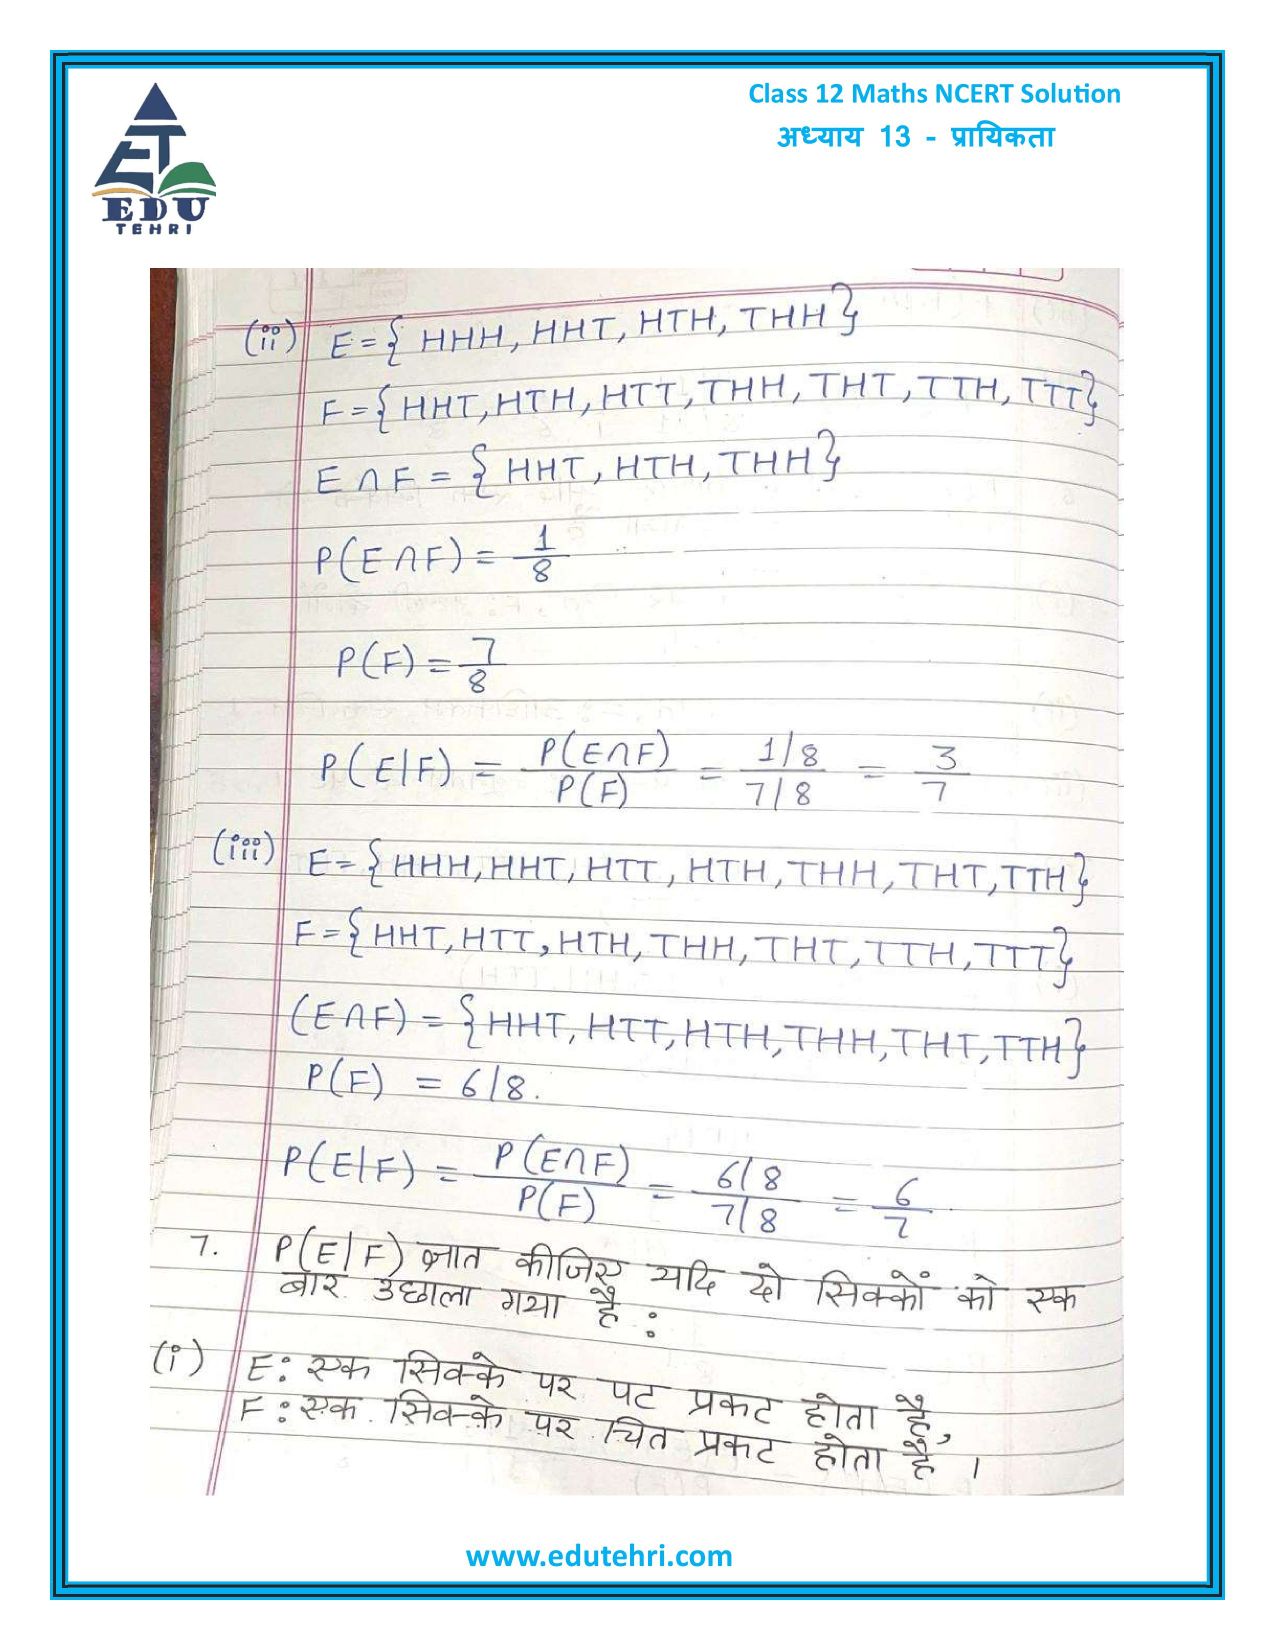 Class 12 Maths NCERT Solution
अध्याय 13 - प्रायिकता
EDU
TEHRI
(ii) E = { HHH, HHT, HTH, THH }
F = { HHT, HTH, HTT, THH, THT, TTH, TTT }
E ∩ F = { HHT, HTH, THH }
P(E ∩ F) = 1/8
P(F) = 7/8
P(E|F) = P(E∩F)/P(F) = 1/8 / 7/8 = 3/7
(iii) E = { HHH, HHT, HTT, HTH, THH, THT, TTH }
F = { HHT, HTT, HTH, THH, THT, TTH, TTT }
(E ∩ F) = { HHT, HTT, HTH, THH, THT, TTH }
P(F) = 6/8.
P(E|F) = P(E∩F)/P(F) = 6/8 / 7/8 = 6/7
7. P(E|F) ज्ञात कीजिए यदि दो सिक्कों को एक
बार उछाला गया है :
(i) E : एक सिक्के पर पट प्रकट होता है,
F : एक सिक्के पर चित प्रकट होता है ।
www.edutehri.com